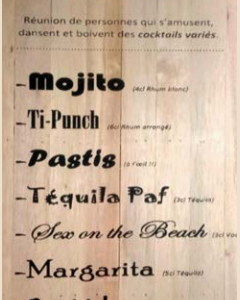 Réunion de personnes qui s'amusent,
dansent et boivent des cocktails variés.
–Mojito (4cl Rhum blanc)
–Ti-Punch (6cl Rhum arrangé)
–Pastis (à l'œil !!)
–Téquila Paf (3cl Téquila)
–Sex on the Beach
–Margarita (5cl Téquila)